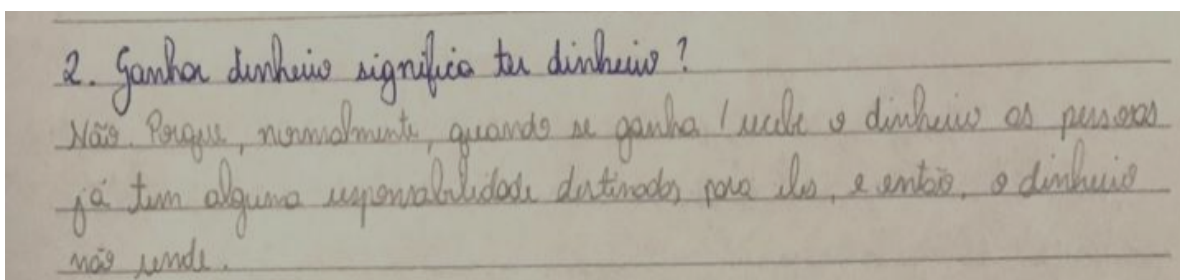 2. Ganhar dinheiro significa ter dinheiro?
Não. Porque, normalmente, quando se ganha / recebe o dinheiro as pessoas
já tem alguma responsabilidade destinados para eles, e então, o dinheiro
não rende.